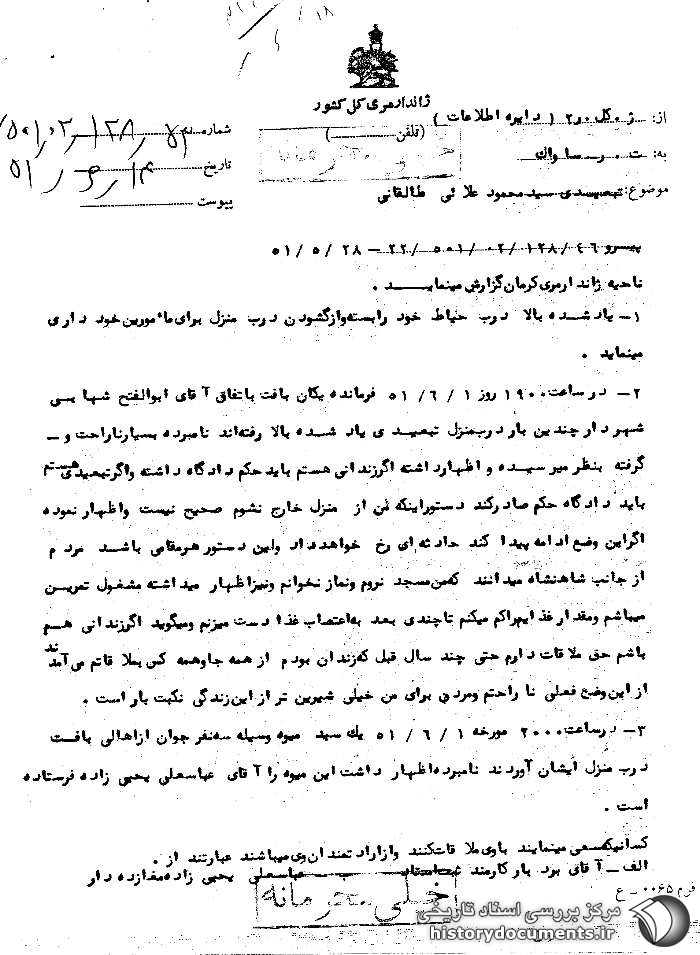 ژاندارمری کل کشور
از: ژ . کل . ر۲ ( دایره اطلاعات )
(تلفن ــــــ)
به: ت . ر . ساواک
موضوع: تبعیدی سید محمود علائی طالقانی
شماره
تاریخ ۵۱/۶/۴
پیوست
خیلی محرمانه
پیرو ۴۶/ ۱۲۸/ ۰۲/ ۵۰۱/ ۲۲ – ۲۸ /۵ /۵۱
ناحیه ژاندارمری کرمان گزارش مینماید .
۱– یاد شده بالا درب حیاط خود رابسته وازگشودن درب منزل برای مامورین خود داری
مینماید .
۲– در ساعت ۱۹۰۰ روز ۱/ ۶/ ۵۱ فرمانده یکان بافت باتفاق آقای ابوالفتح شهابی
شهردار چندین بار درب منزل تبعیدی یاد شده بالا رفته‌اند نامبرده بسیار ناراحت و –
گرفته بنظر میرسیده و اظهار داشته اگر زندانی هستم باید حکم دادگاه داشته واگر تبعیدی هستم
باید دادگاه حکم صادر کند دستور اینکه من از منزل خارج نشوم صحیح نیست واظهار نموده
اگر این وضع ادامه پیدا کند حادثه‌ای رخ خواهد داد واین دستور هرمقامی باشد مردم
از جانب شاهنشاه میدانند که من مسجد نروم ونماز نخوانم ونیز اظهار میداشته مشغول تمرین
میباشم ومقدار غذایم راکم میکنم تاچندی بعد به اعتصاب غذا دست میزنم ومیگوید اگر زندانی هم
باشم حق ملاقات دارم حتی چند سال قبل که زندان بودم از همه جا وهمه کس بملاقاتم می‌آمدند
از این وضع فعلی ناراحتم ومردن برای من خیلی شیرین تر از این زندگی نکبت بار است .
۳– در ساعت ۲۰۰۰ مورخه ۱/ ۶/ ۵۱ یک سبد میوه وسیله سه نفر جوان از اهالی بافت
درب منزل ایشان آوردند نامبرده اظهار داشت این میوه را آقای عباسعلی یحیی زاده فرستاده
است .
کسانیکه سعی مینمایند باوی ملاقات کنند وازارادتمندان وی میباشند عبارتند از .
الف – آقای برد بار کارمند ب – عباسعلی یحیی زاده مغازه دار
فرم ۰۰۶۵ – ع
خیلی محرمانه
مرکز بررسی اسناد تاریخی
historydocuments.ir